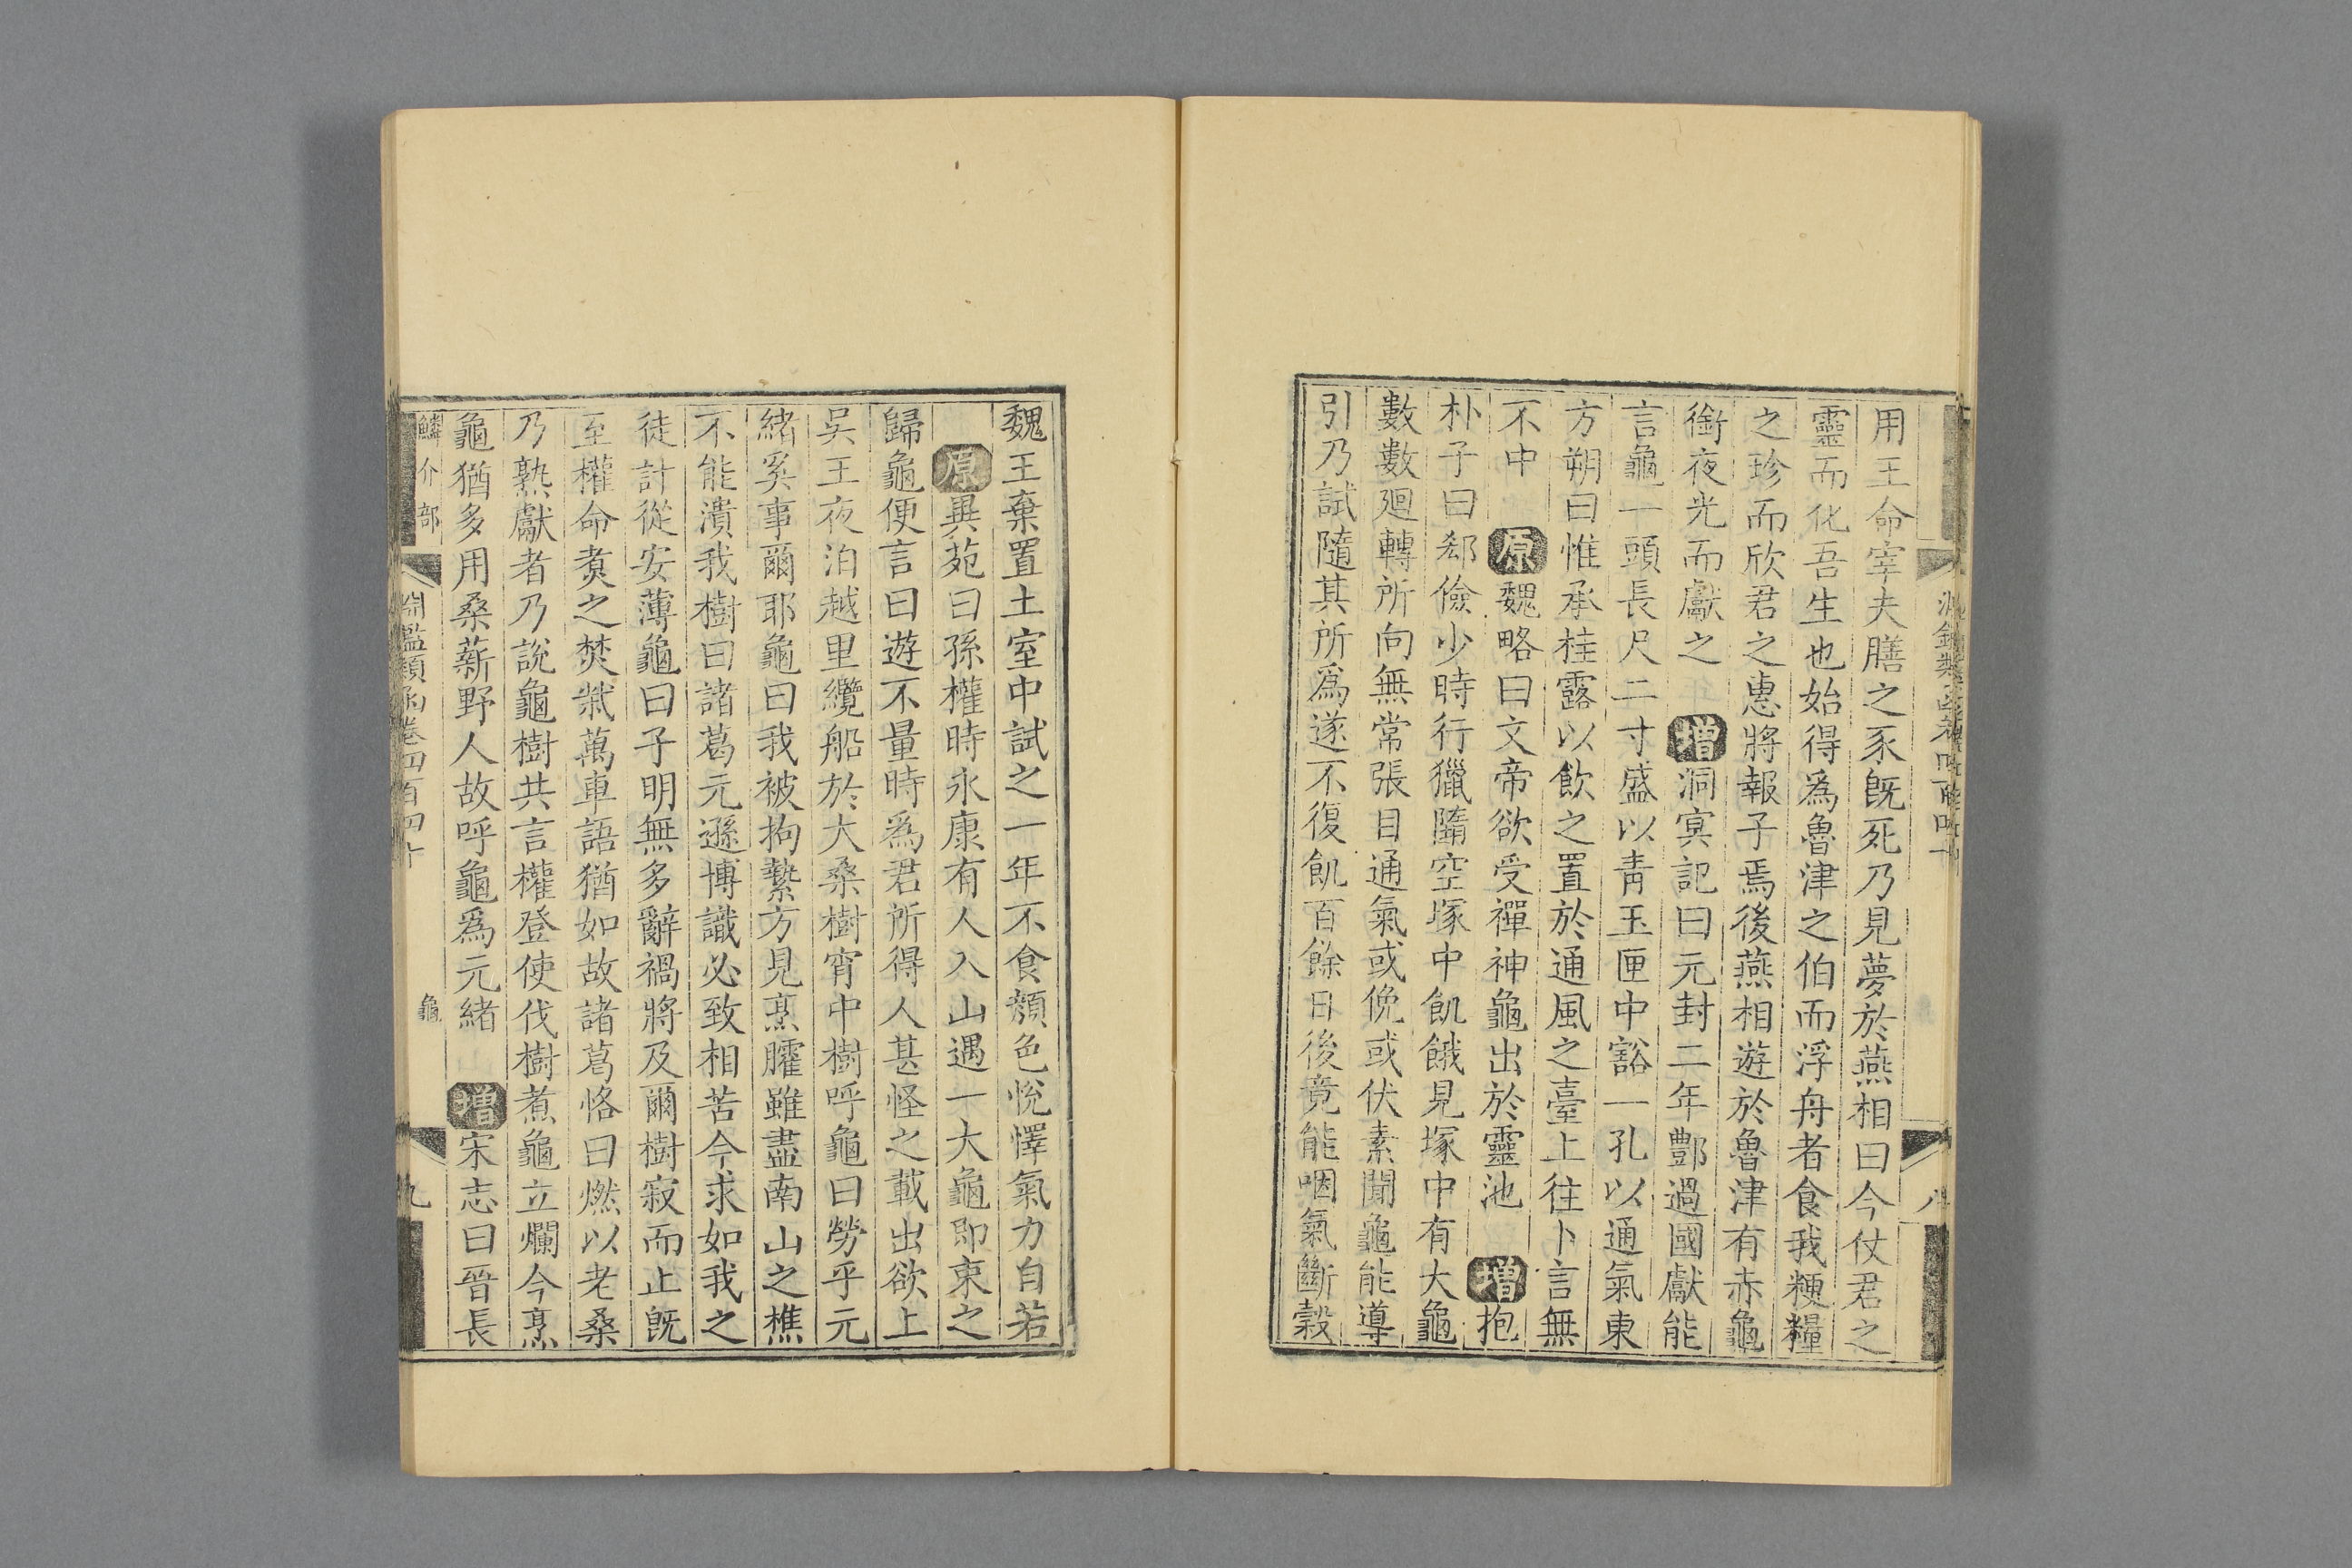 用王命宰夫膳之豕旣死乃見夢於燕相曰今仗君之
靈而化吾生也始得爲魯津之伯而浮舟者食我粳糧
之珍而欣君之惠將報子焉後燕相遊於魯津有赤龜
銜夜光而獻之 增洞冥記曰元封二年酆過國獻能
言龜一頭長尺二寸盛以靑玉匣中豁一孔以通氣東
方朔曰惟承桂露以飮之置於通風之臺上往卜言無
不中 原魏略曰文帝欲受禪神龜出於靈池 增抱
朴子曰郄儉少時行獵隨空塚中飢餓見塚中有大龜
數數廻轉所向無常張目通氣或俛或伏素聞龜能導
引乃試隨其所爲遂不復飢百餘日後竟能咽氣斷穀
魏王棄置土室中試之一年不食顏色悅懌氣力自若
原異苑曰孫權時永康有人入山遇一大龜即束之
歸龜便言曰遊不量時爲君所得人甚怪之載出欲上
吳王夜泊越里纜船於大桑樹宵中樹呼龜曰勞乎元
緒奚事爾耶龜曰我被拘縶方見烹臛雖盡南山之樵
不能潰我樹曰諸葛元遜博識必致相苦今求如我之
徒計從安薄龜曰子明無多辭禍將及爾樹寂而止旣
至權命煑之焚柴萬車語猶如故諸葛恪曰燃以老桑
乃熟獻者乃說龜樹共言權登使伐樹煮龜立爛今烹
龜猶多用桑薪野人故呼龜爲元緒 增宋志曰晉長
鱗介部
淵鑑類函卷四百四十
龜
九